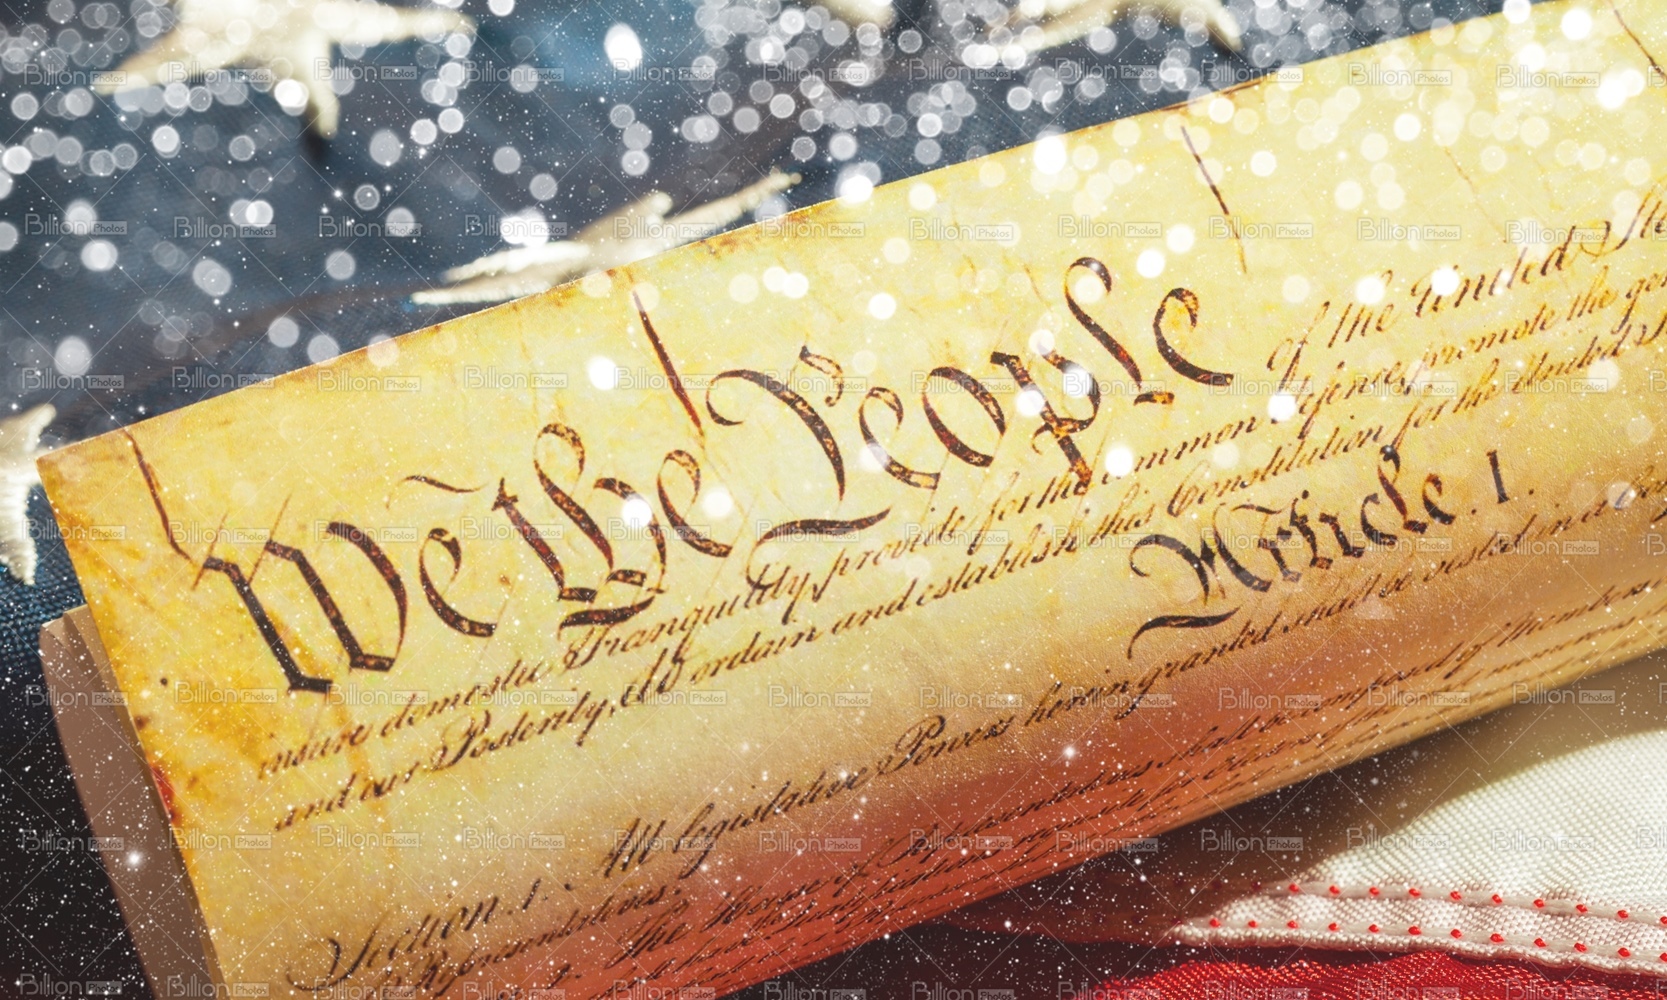 We the People of the United
insure domestic Tranquility, provide for the common defence, promote the
and our Posterity, do ordain and establish this Constitution for the United
Article. I.
Section. 1. All legislative Powers herein granted shall be vested in a
Representatives.
The House of Representatives shall be composed of
Billion Photos